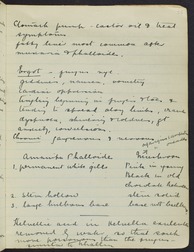 Stomach pump - castor oil & treat
symptoms
fatty liver most common after
muscaria & phalloide.
Ergot - fungus rye
giddiness, nausea, vomiting
cardiac oppression
tingling, burning in fingers & toes &
tending to spread along limbs,
dyspnoea, shivering & coldness,
anxiety, convulsions.
Chronic gangrenous & nervous
Amanita Phalloide Mushroom
1. permanent white gills Pink in young
Black in old
chocolate
2. stem hollow stem solid
3. large bulbous base base not bulbous
Helvella acid in Helvella esculenta
removed by water, so that soup
more poisonous than the fungus